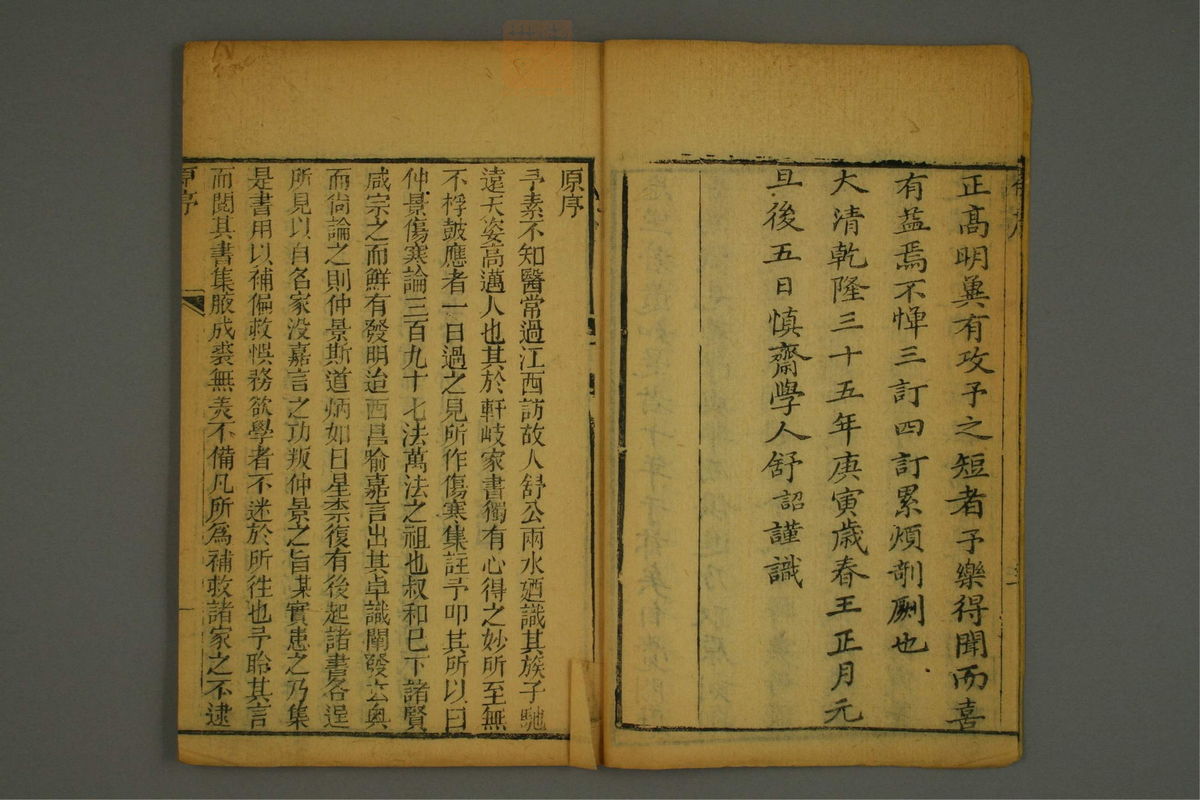 正高明冀有攻予之短者予樂得聞而喜
有益焉不憚三訂四訂累煩剞劂也
大清乾隆三十五年庚寅歲春王正月元
旦後五日慎齋學人舒詔謹識
原序
予素不知醫常過江西訪故人舒公兩水廼識其族子馳
遠天姿高邁人也其於軒岐家書獨有心得之妙所至無
不桴鼓應者一日過之見所作傷寒集註予叩其所以曰
仲景傷寒論三百九十七法萬法之祖也叔和已下諸賢
咸宗之而鮮有發明迨西昌喻嘉言出其卓識闡發玄奧
而尙論之則仲景斯道炳如日星柰復有後起諸書各逞
所見以自名家没嘉言之功叛仲景之旨某實患之乃集
是書用以補偏救悞務欲學者不迷於所徃也予聆其言
而閱其書集腋成裘無美不備凡所爲補救諸家之不逮
原序
一